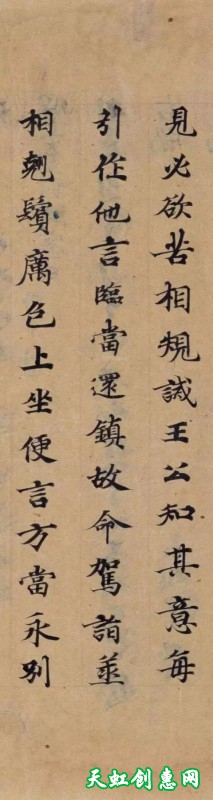 見必欲苦相規誡王公知其意每
引作他言臨當還鎮故命駕詣並
相剋鬚厲色上坐便言方當永別
天虹创惠网